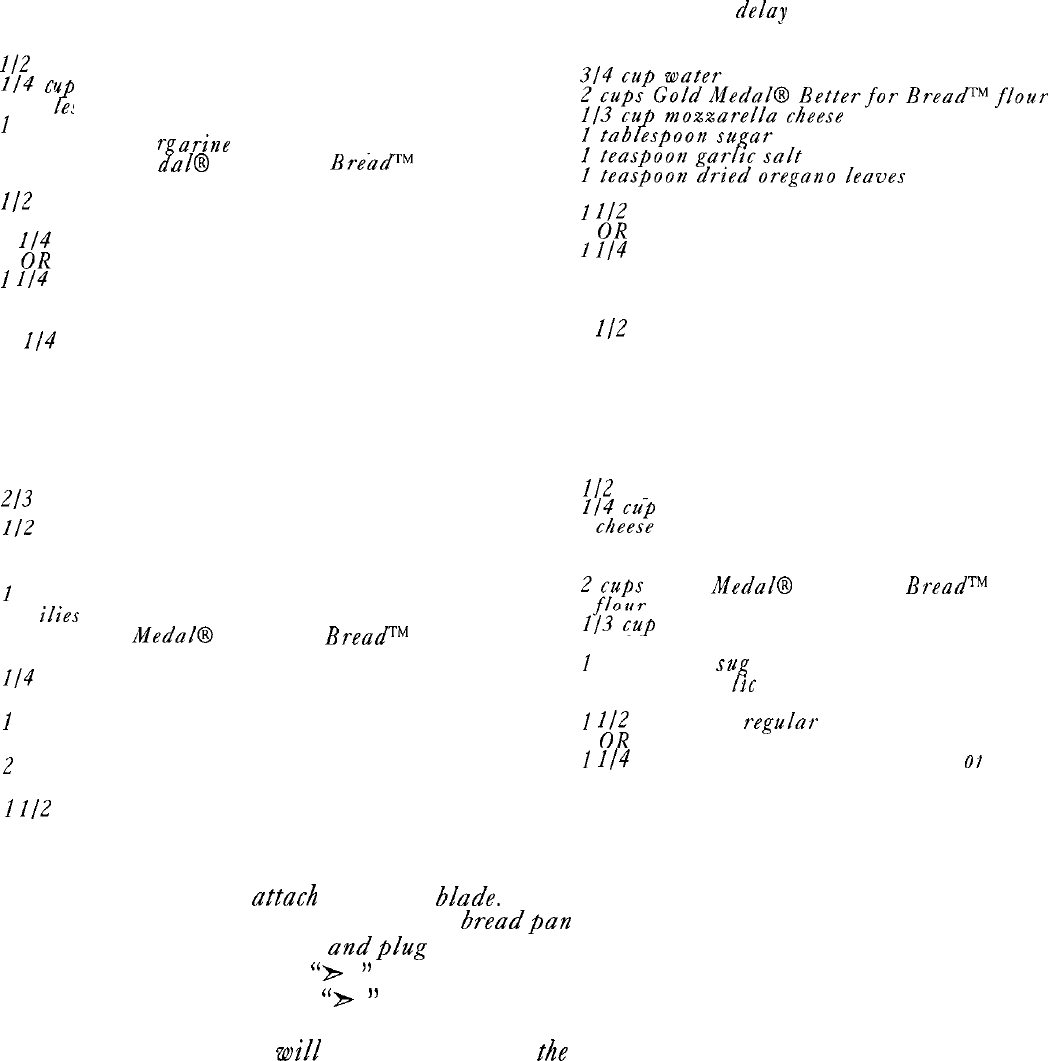 delay
1/2
1/4 cup
1
rgarine
dal® Bread™
1/2
1/4
OR
1 1/4
1/4
3/4 cup water
2 cups Gold Medal® Better for Bread™ flour
1/3 cup mozzarella cheese
1 tablespoon sugar
1 teaspoon garlic salt
1 teaspoon dried oregano leaves
1 1/2
OR
1 1/4
1/2
2/3
1/2
1
ilies
Medal® Bread™
1/4
1
2
1 1/2
1/2
1/4 cup
cheese
2 cups Medal® Bread™
flour
1/3 cup
1 sug
lic
1 1/2 regular
OR
1 1/4
attach blade.
bread pan
and plug
“➤ ”
“➤ ”
will the